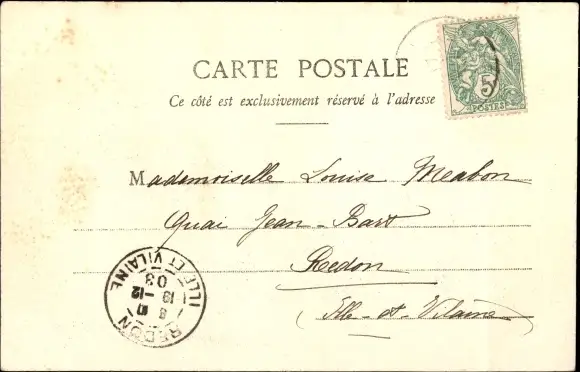 CARTE POSTALE
Ce côté est exclusivement réservé à l'adresse
5
POSTES
Mademoiselle Louise Meabon
Quai Jean-Bart
Redon
(Ille-et-Vilaine)
REDON
ILLE ET VILAINE
13 -12
03